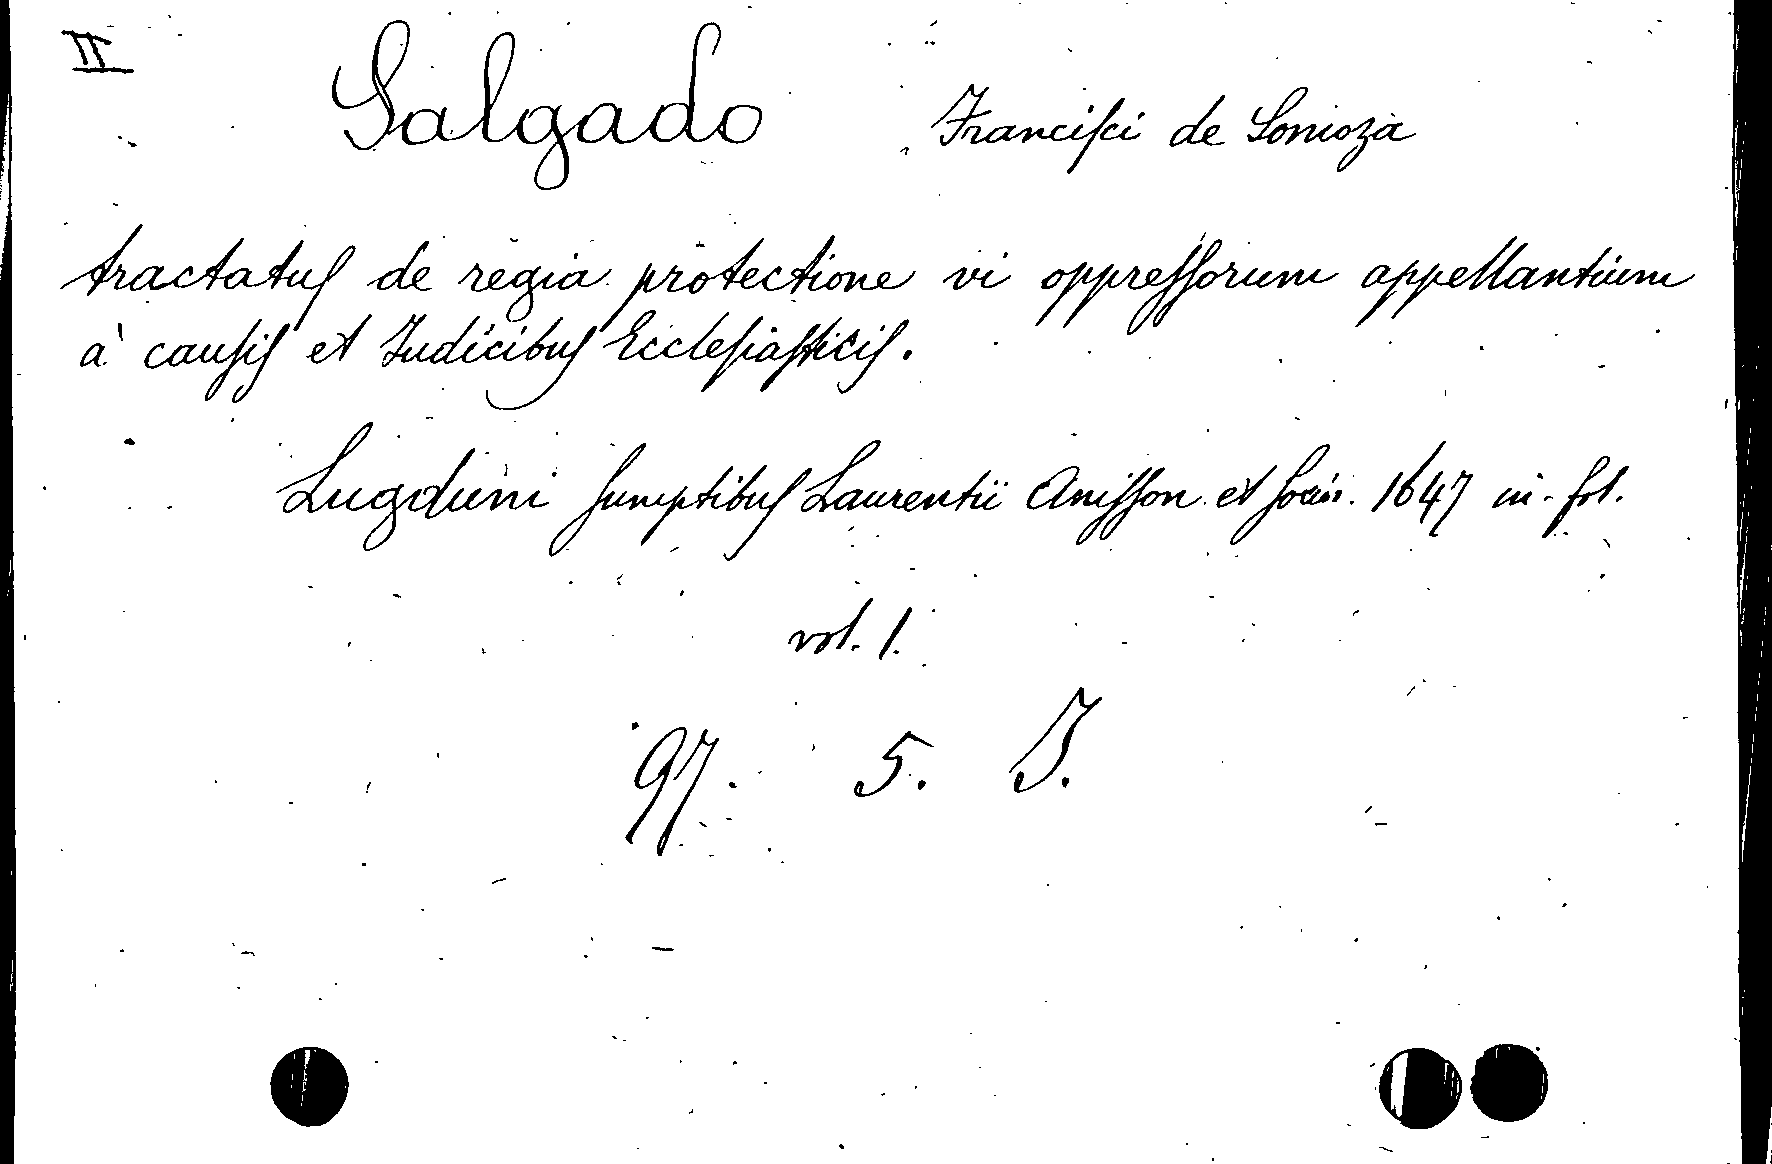 II
Salgado Francisci de Sonioza
tractatus de regia protectione vi oppressorum appellantium
à causis et Iudicibus Ecclesiasticis.
Lugduni sumptibus Laurentii Anisson et Socior. 1647 in-fol.
vol. 1.
97. 5. I.